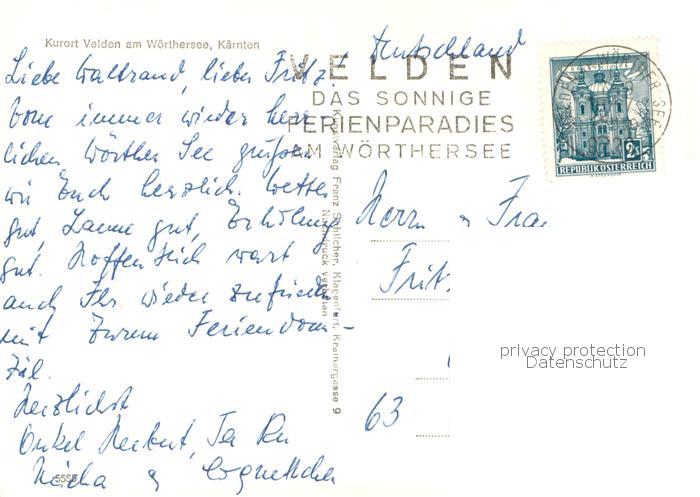 Kurort Velden am Wörthersee, Kärnten
Liebe Waltraud, lieber Fritz!
Vom immer wieder herr
lichen Wörther See grüßen
wir Euch herzlich. Wetter
gut, Laune gut, Erholung
gut. Hoffentlich wart
auch Ihr wieder zufrieden
mit Eurem Feriendomi-
zil.
Herzlichst
Onkel Herbert,
5595
Kunstverlag Franz Schilcher, Klagenfurt, Kramergasse 9
Nachdruck verboten
Deutschland
VELDEN
DAS SONNIGE
FERIENPARADIES
AM WÖRTHERSEE
2S
REPUBLIK ÖSTERREICH
Herrn u Frau
Fritz
63
privacy protection
Datenschutz